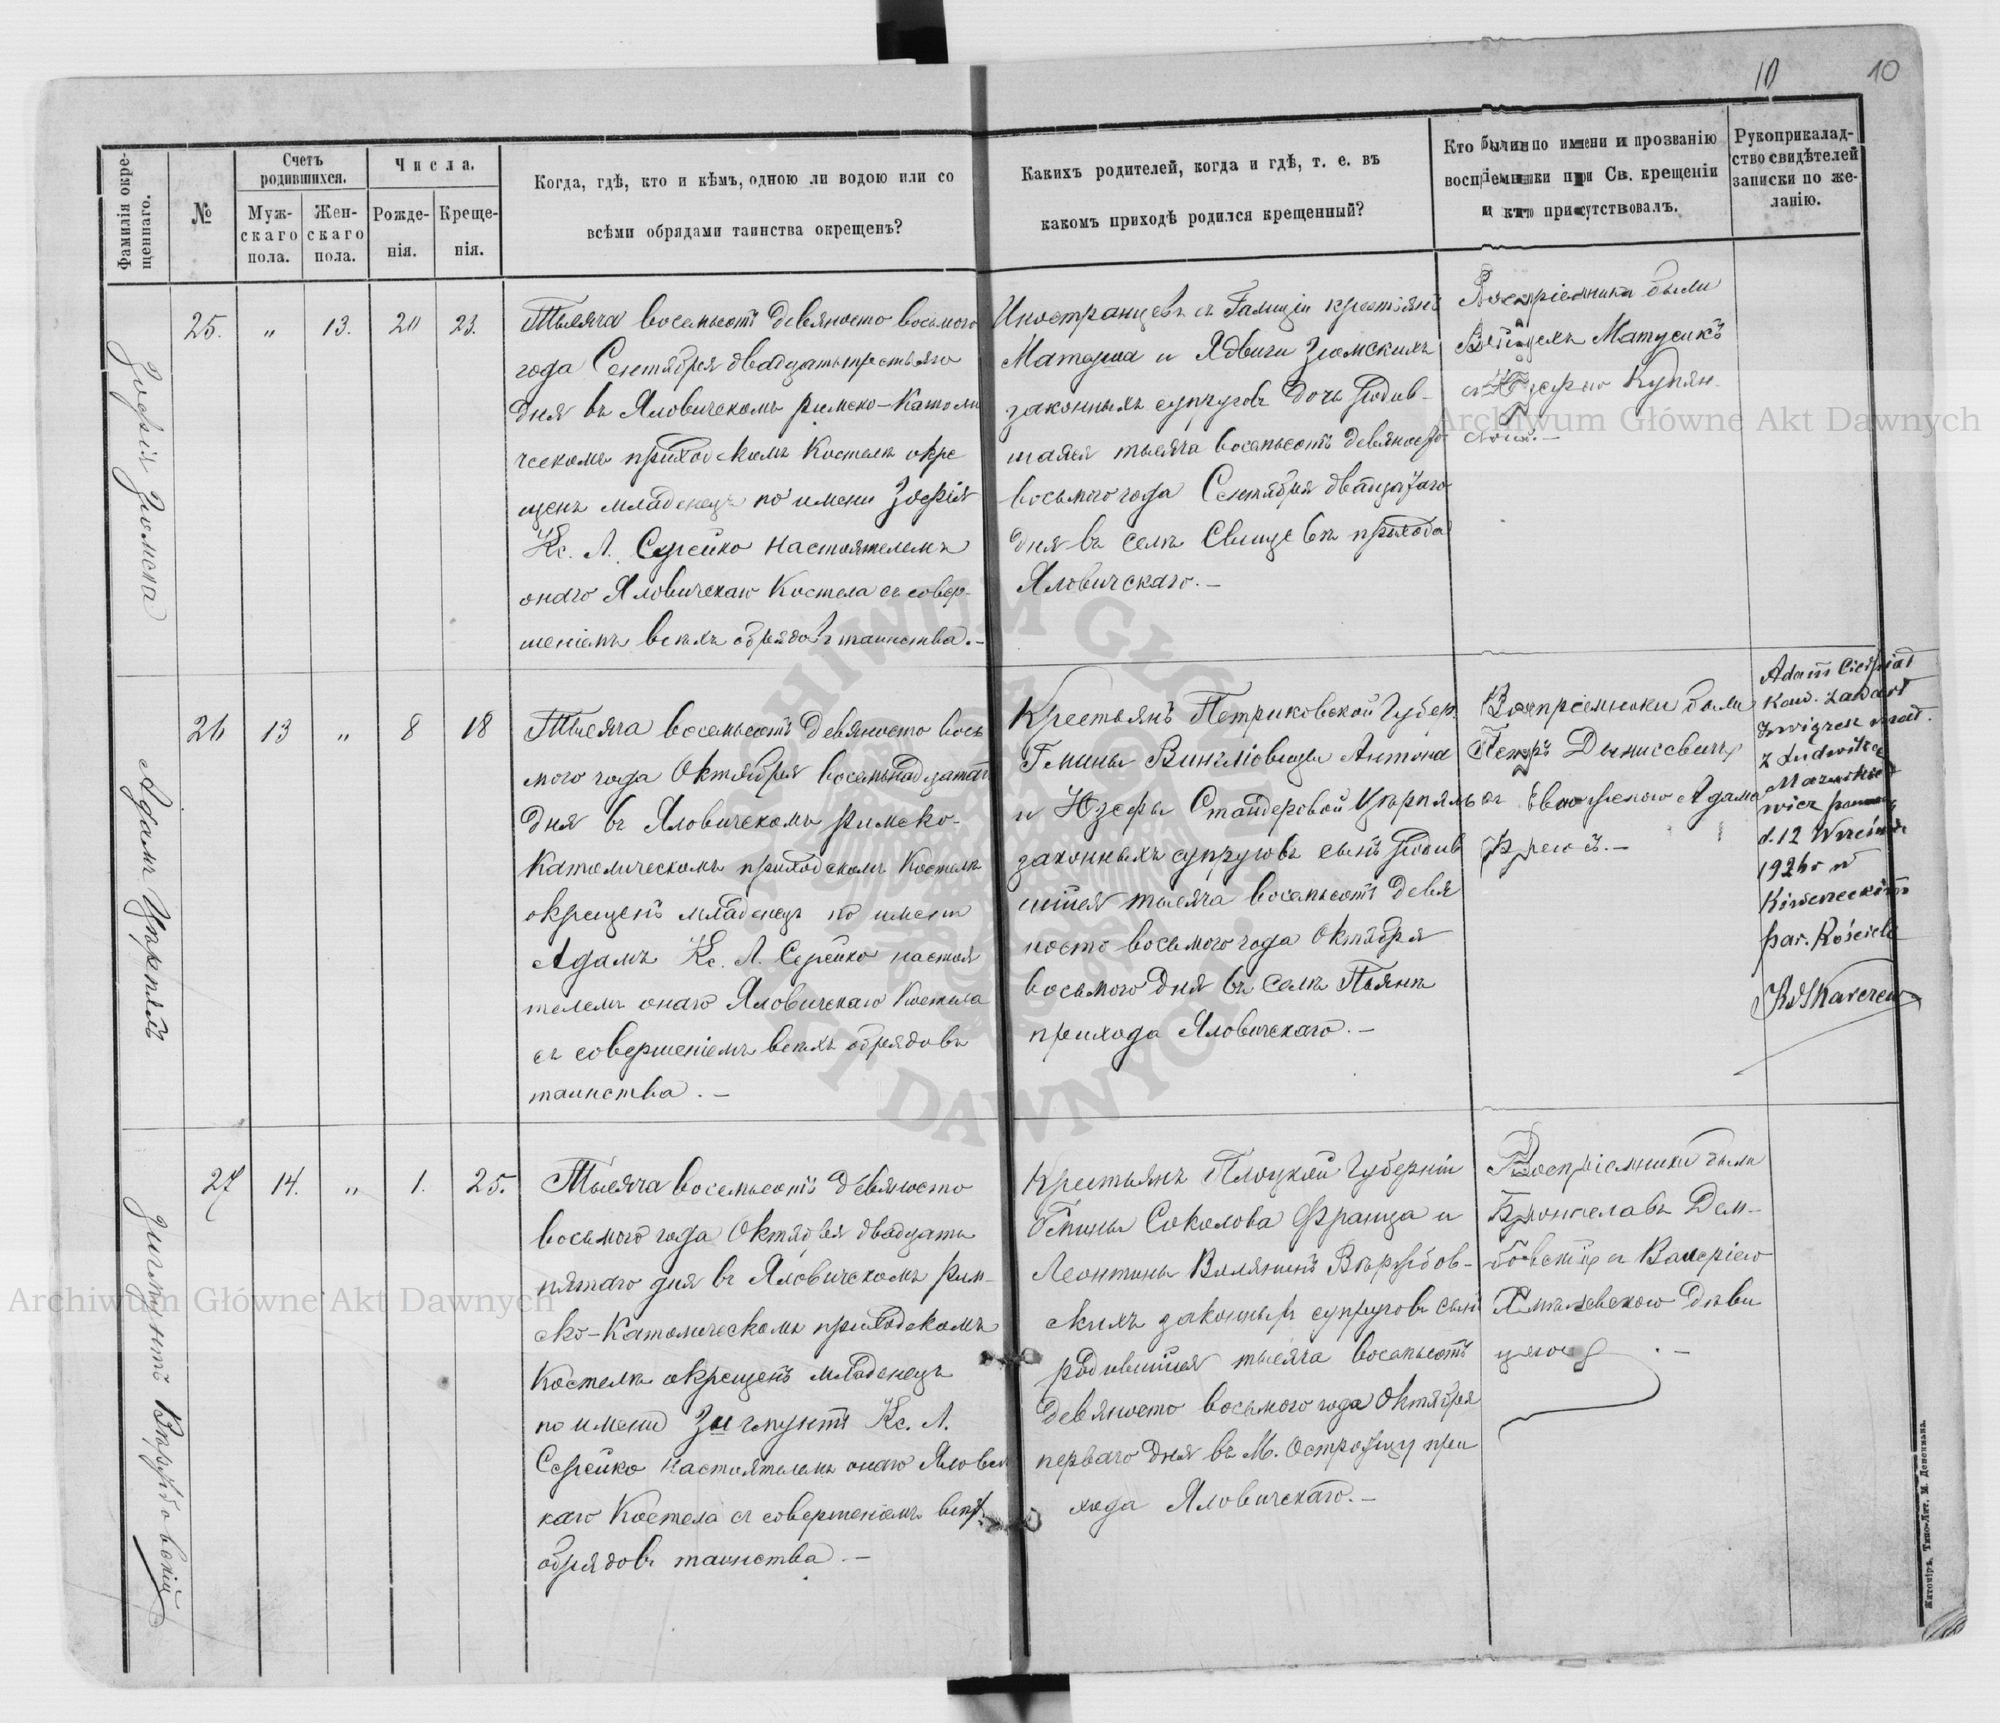 10
10
Фамилія окрещеннаго.
№
Счетъ родившихся.
Мужскаго пола.
Женскаго пола.
Числа.
Рожденія.
Крещенія.
Когда, гдѣ, кто и кѣмъ, одною ли водою или со
всѣми обрядами таинства окрещенъ?
Какихъ родителей, когда и гдѣ, т. е. въ
какомъ приходѣ родился крещенный?
Кто были по имени и прозванію
воспріемники при Св. крещеніи
и кто присутствовалъ.
Рукоприкладство свидѣтелей записки по желанію.
25. " 13. 20 23.
Тысяча восемьсотъ девяносто восьмого
года Сентября двадцатьтретьяго
дня въ Яловичскомъ римско-католи
ческомъ приходскомъ Костелѣ окре
щенъ младенецъ по имени Зофія
Кс. Л. Серейко настоятелемъ
онаго Яловичскаго Костела съ совер-
шеніемъ всѣхъ обрядовъ таинства.-
Иностранцевъ съ Галиціи крестьянъ
и Ядвиги
законныхъ супруговъ дочь родив-
шаяся тысяча восемьсотъ девяносто
восьмого года Сентября двадцатаго
дня въ селѣ прихода
Яловичскаго.-
Воспріемники были
Матусикъ
26 13 " 8 18
Адамъ Цѣрпялъ
Тысяча восемьсотъ девяносто вось
мого года Октября восемьнадцатаго
дня въ Яловичскомъ римско-
Католическомъ приходскомъ Костелѣ
окрещенъ младенецъ по имени
Адамъ Кс. Л. Серейко настоя
телемъ онаго Яловичскаго Костела
съ совершеніемъ всѣхъ обрядовъ
таинства.-
Крестьянъ Петриковской Губер.
Гмины Антона
и Юзефы Цѣрпялъ
законныхъ супруговъ сынъ родив
шійся тысяча восемьсотъ девя
носто восьмого года Октября
восьмого дня въ селѣ Пьянѣ
прихода Яловичскаго.-
Воспріемники были
Петръ
Адама
Adam Cierpiał
d. 12 Września
1926 r w
par. Kościele
27 14. " 1. 25.
Зигмунтъ
Тысяча восемьсотъ девяносто
восьмого года Октября двадцать
пятаго дня въ Яловичскомъ рим-
ско-католическомъ приходскомъ
Костелѣ окрещенъ младенецъ
по имени Зигмунтъ Кс. Л.
Серейко настоятелемъ онаго Ялович
каго Костела съ совершеніемъ всѣхъ
обрядовъ таинства.-
Крестьянъ Плоцкой Губерніи
Гмины Соколова Франца и
Леонтины
скихъ законныхъ супруговъ сынъ
родившійся тысяча восемьсотъ
девяносто восьмого года Октября
перваго дня въ М. при
хода Яловичскаго.-
Воспріемники были
Брониславъ Дем-
бовскій съ Валеріею
Житоміръ, Типо-Лит. М. Дененмана.
Archiwum Główne Akt Dawnych
Archiwum Główne Akt Dawnych
ARCHIWUM GŁÓWNE AKT DAWNYCH